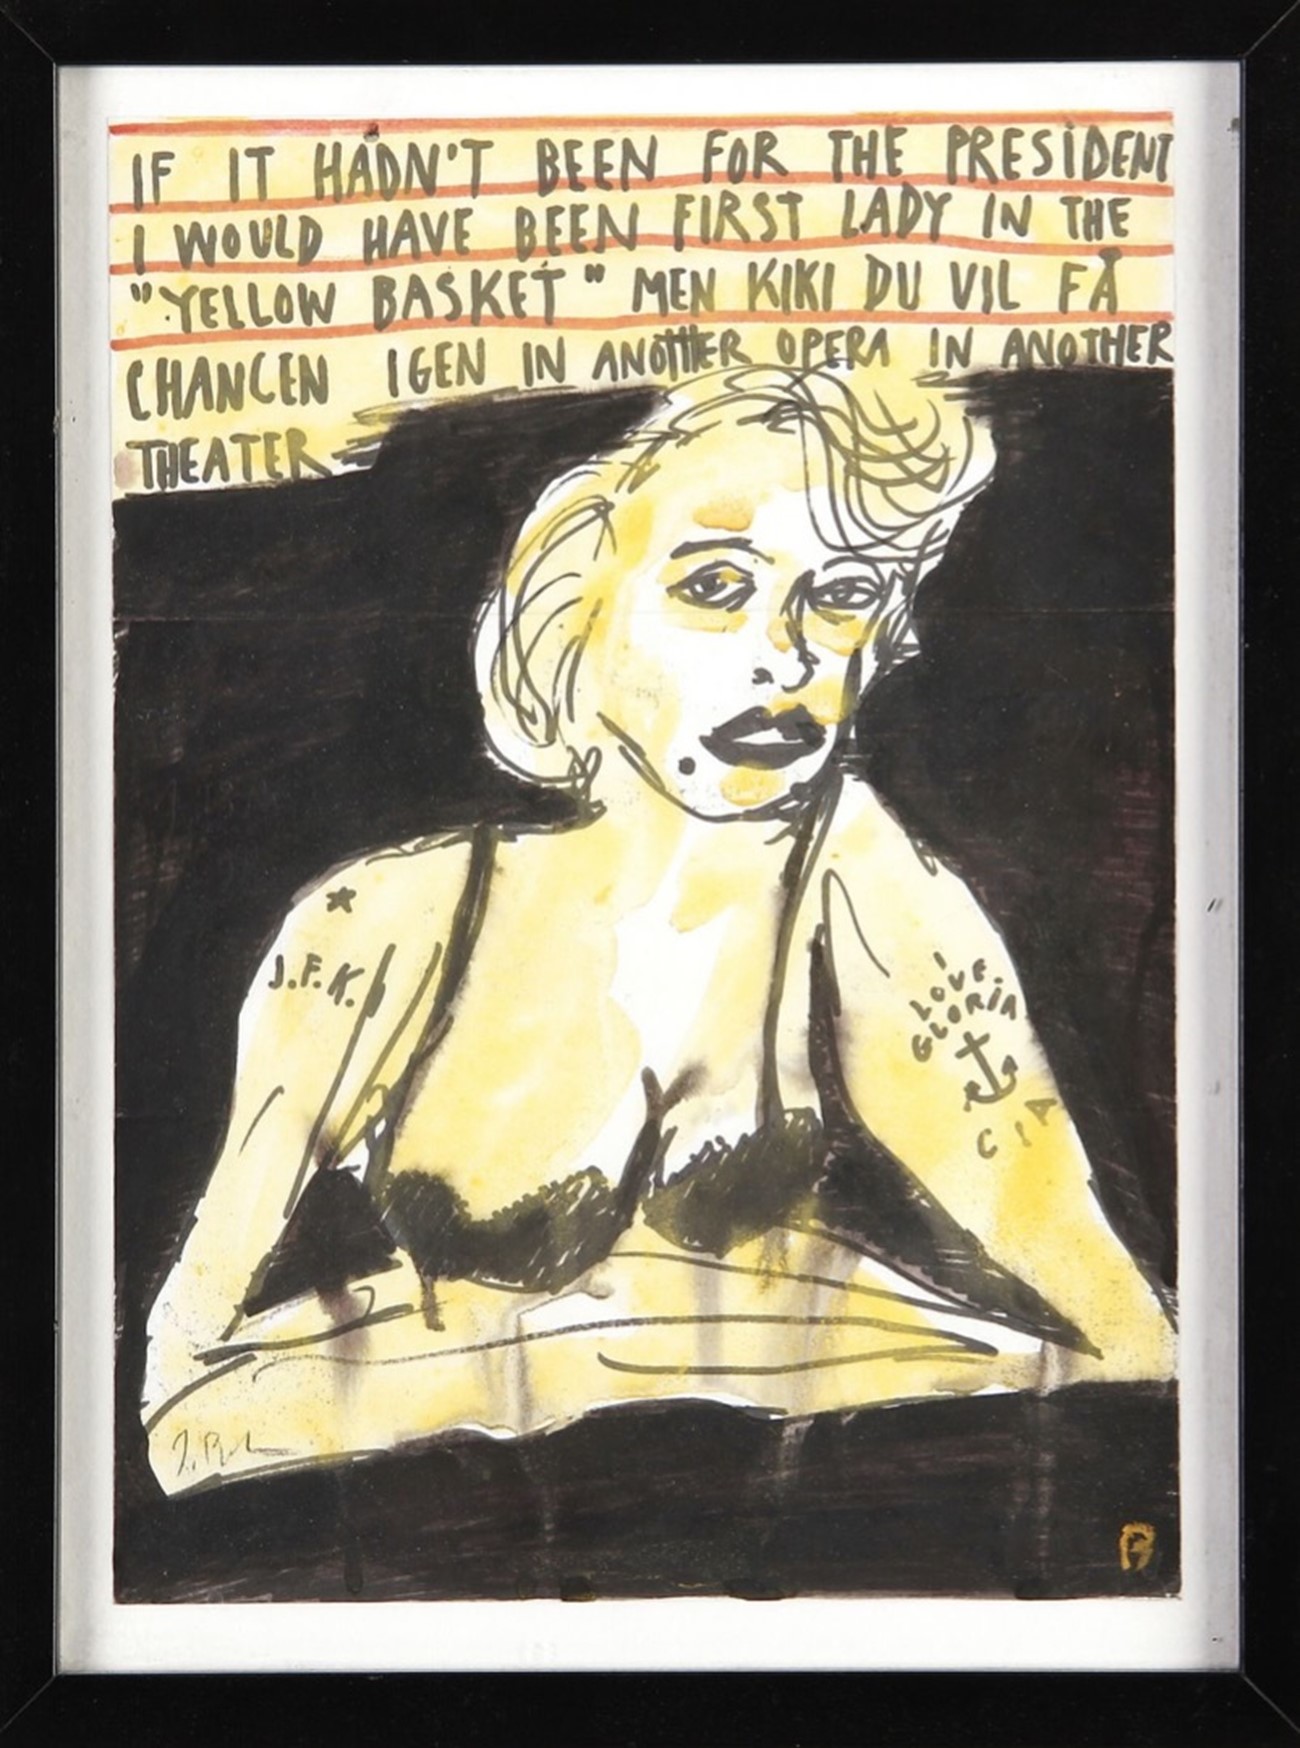 IF IT HADN'T BEEN FOR THE PRESIDENT
I WOULD HAVE BEEN FIRST LADY IN THE
"YELLOW BASKET" MEN KIKI DU VIL FÅ
CHANCEN IGEN IN ANOTHER OPERA IN ANOTHER
THEATER
J.F.K.
I
LOVE.
GLORIA
CIA